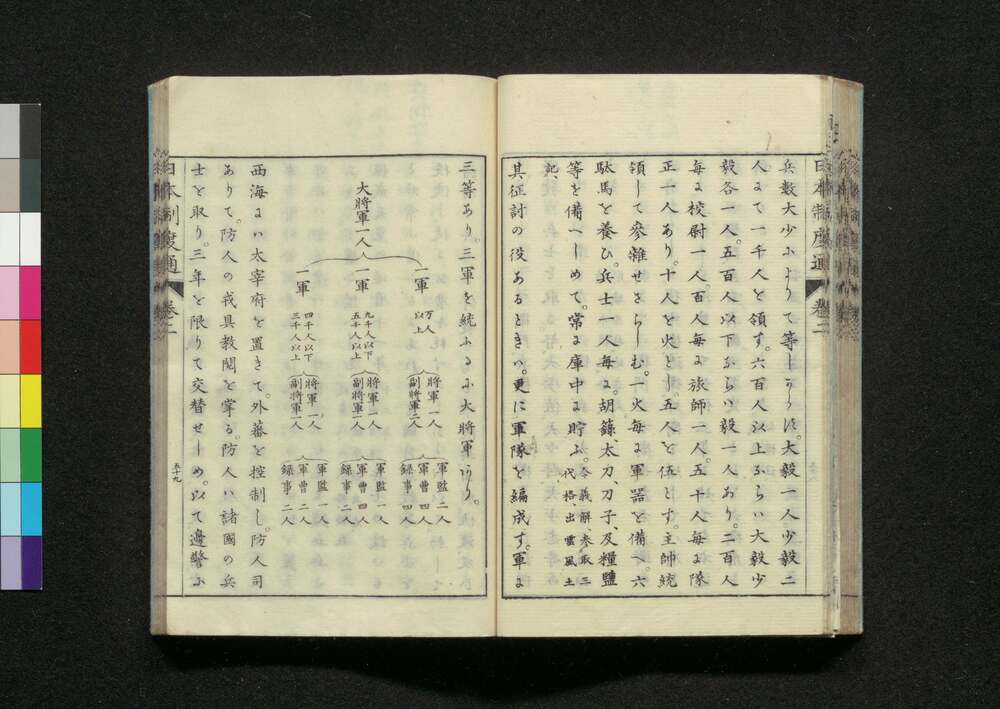 兵數大少によりて等しからす。大毅一人少毅二
人まて一千人を領す。六百人以上ならは大毅少
毅各一人。五百人以下ならは毅一人あり。二百人
每に校尉一人。百人每に旅師一人。五十人每に隊
正一人あり。十人を火とし。五人を伍とす。主帥統
領して參雜せさらしむ。一火每に軍器を備へ。六
駄馬を養ひ。兵士一人每に。胡籙、太刀、刀子、及糧鹽
等を備へしめて。常に庫中に貯ふ。令義解、参取三
代格出雲風土
記、
其征討の役あるときは。更に軍隊を編成す。軍に
日本制度通
卷二
三等あり。三軍を統ふるに大將軍あり。
大將軍一人
一軍
万人
以上
將軍一人
副將軍二人
軍監二人
軍曹四人
錄事四人
一軍
九千人以下
五千人以上
將軍一人
副將軍一人
軍監一人
軍曹四人
錄事二人
一軍
四千人以下
三千人以上
將軍一人
副將軍一人
軍監一人
軍曹二人
錄事二人
西海には太宰府を置きて。外蕃を控制し。防人司
ありて。防人の戎具教閲を掌る。防人は諸國の兵
士を取り。三年を限りて交替せしめ。以て邊警に
日本制度通
卷二
五十九